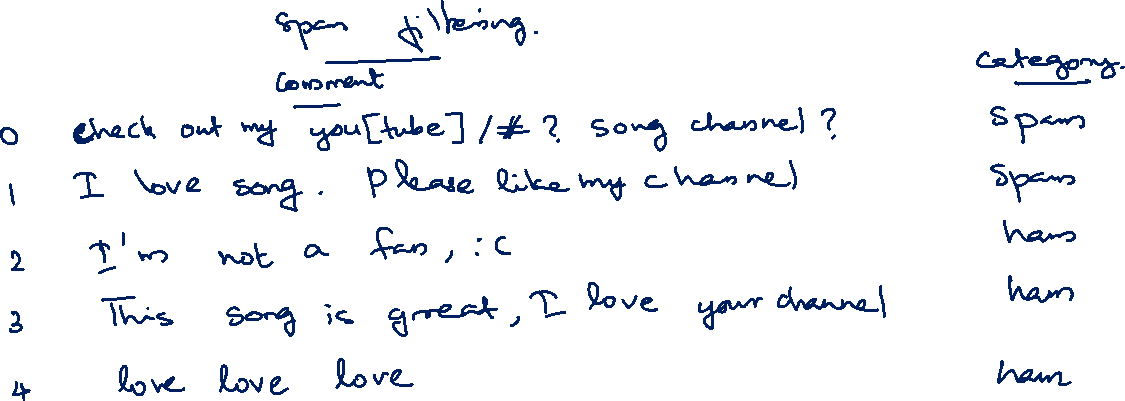 spam filtering.
Comment category.
0 check out my you[tube] / # ? song channel ? spam
1 I love song. Please like my channel spam
2 I'm not a fan, :C ham
3 This song is great, I love your channel ham
4 love love love ham